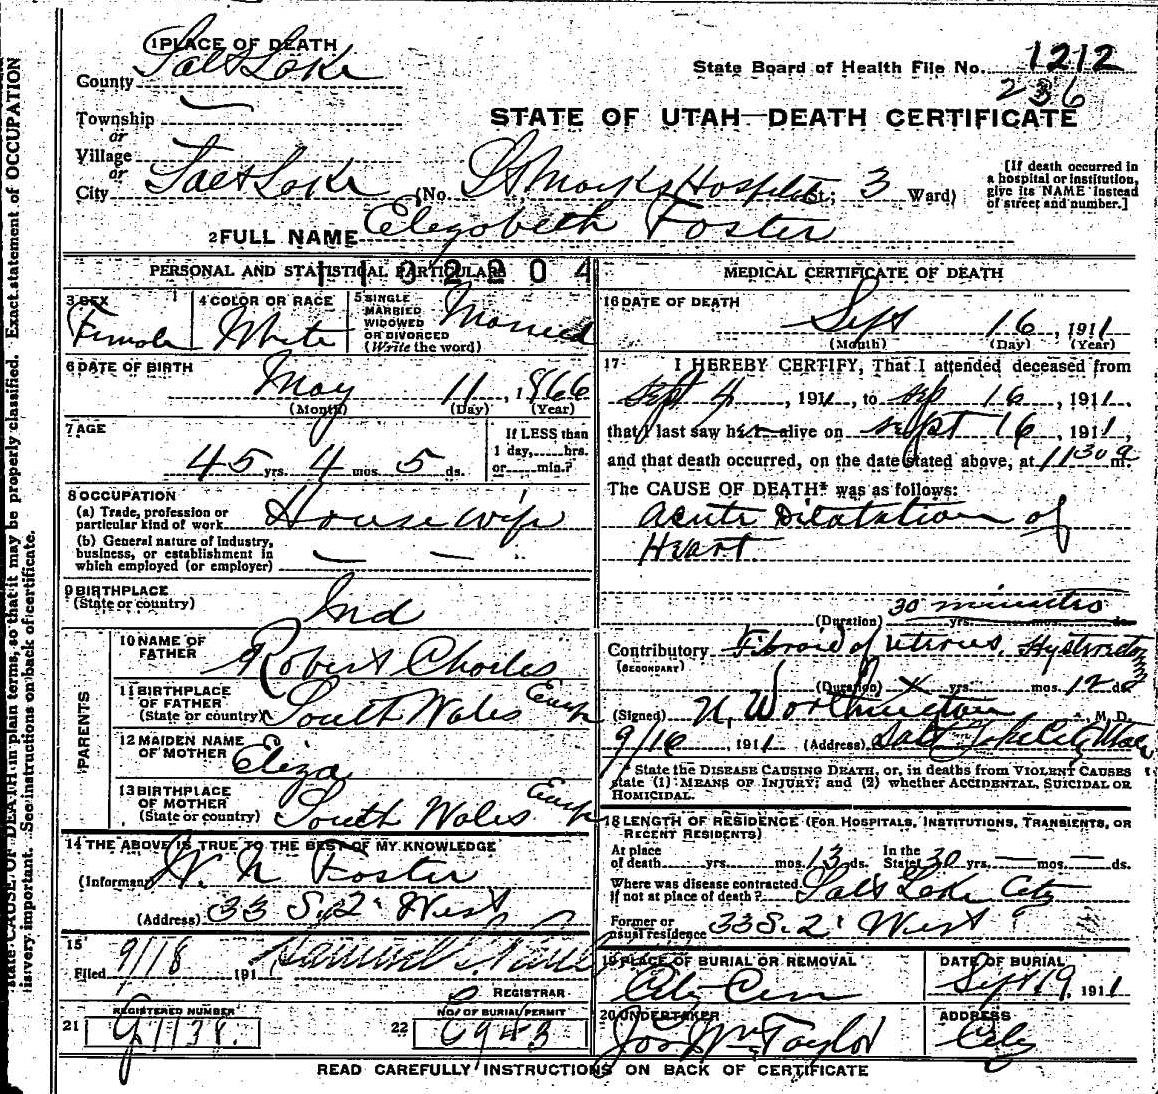 1 PLACE OF DEATH
County Salt Lake
State Board of Health File No. 1212
236
Township
or
Village
or
STATE OF UTAH—DEATH CERTIFICATE
City Salt Lake (No. St Marks Hospital St.; 3 Ward)
[If death occurred in
a hospital or institution,
give its NAME instead
of street and number.]
2 FULL NAME Elizabeth Foster
PERSONAL AND STATISTICAL PARTICULARS
1102904
3 SEX
Female
4 COLOR OR RACE
White
5 SINGLE
MARRIED
WIDOWED
OR DIVORCED
(Write the word)
Married
6 DATE OF BIRTH
May 11, 1866
(Month) (Day) (Year)
7 AGE
45 yrs. 4 mos. 5 ds.
If LESS than
1 day, hrs.
or min.?
8 OCCUPATION
(a) Trade, profession or
particular kind of work House wife
(b) General nature of Industry,
business, or establishment in
which employed (or employer)
9 BIRTHPLACE
(State or country)
Ind
PARENTS
10 NAME OF
FATHER
Robert Charles
11 BIRTHPLACE
OF FATHER
(State or country)
South Wales
12 MAIDEN NAME
OF MOTHER
Eliza
13 BIRTHPLACE
OF MOTHER
(State or country)
South Wales
14 THE ABOVE IS TRUE TO THE BEST OF MY KNOWLEDGE
(Informant) W. N Foster
(Address) 33 S. 2 West
15
Filed 9/18 191
REGISTRAR
REGISTERED NUMBER
21
NO. OF BURIAL PERMIT
22
MEDICAL CERTIFICATE OF DEATH
16 DATE OF DEATH
Sept 16, 1911
(Month) (Day) (Year)
17 I HEREBY CERTIFY, That I attended deceased from
Sept 4, 1911, to Sep 16, 1911,
that I last saw her alive on Sept 16, 1911,
and that death occurred, on the date stated above, at 11 30 a m.
The CAUSE OF DEATH* was as follows:
Acute Dilatation of
Heart
30 minutes
(Duration) yrs. mos. ds.
Contributory Fibroid of uterus,
(SECONDARY)
(Duration) yrs. mos. 12 ds
(Signed) Worthington, M. D.
9/16, 1911 (Address) Salt Lake City Utah
* State the DISEASE CAUSING DEATH, or, in deaths from VIOLENT CAUSES
state (1) MEANS OF INJURY; and (2) whether ACCIDENTAL, SUICIDAL OR
HOMICIDAL.
18 LENGTH OF RESIDENCE (FOR HOSPITALS, INSTITUTIONS, TRANSIENTS, OR
RECENT RESIDENTS)
At place
of death yrs. mos. 13 ds.
In the
State 30 yrs. mos. ds.
Where was disease contracted
if not at place of death? Salt Lake City
Former or
usual residence 33 S. 2 West
19 PLACE OF BURIAL OR REMOVAL
City Cem
DATE OF BURIAL
Sept 19, 1911
20 UNDERTAKER
Jos Wm Taylor
ADDRESS
City
READ CAREFULLY INSTRUCTIONS ON BACK OF CERTIFICATE
state CAUSE OF DEATH in plain terms, so that it may be properly classified. Exact statement of OCCUPATION
is very important. See instructions on back of certificate.